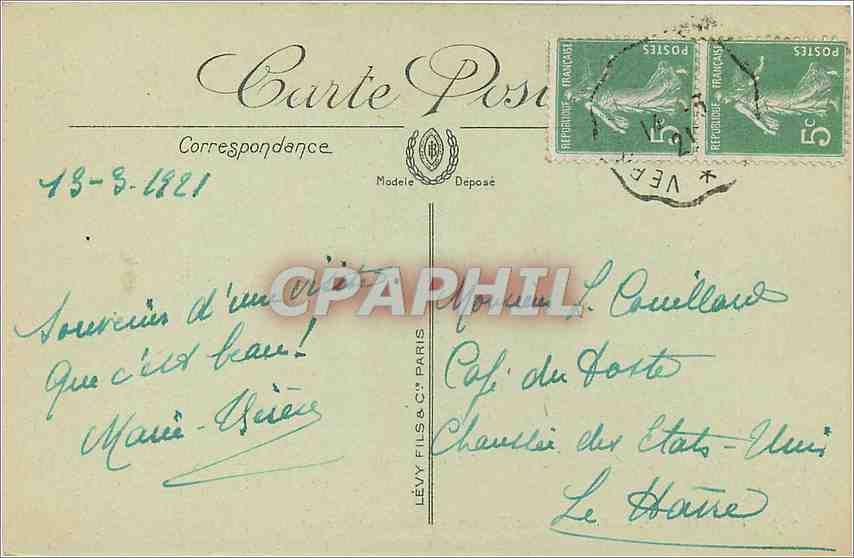 Carte Post
Correspondance
Modele Déposé
POSTES
RÉPUBLIQUE FRANÇAISE
5c
POSTES
RÉPUBLIQUE FRANÇAISE
5c
14-3
21
* VER
13-3-1921
Souvenirs d'une visite.
Que c'est beau!
Marie-
CPAPHIL
LÉVY FILS & Cie PARIS
Monsieur L. Couillard
Café du Poste
Chaussée des Etats-Unis
Le Havre